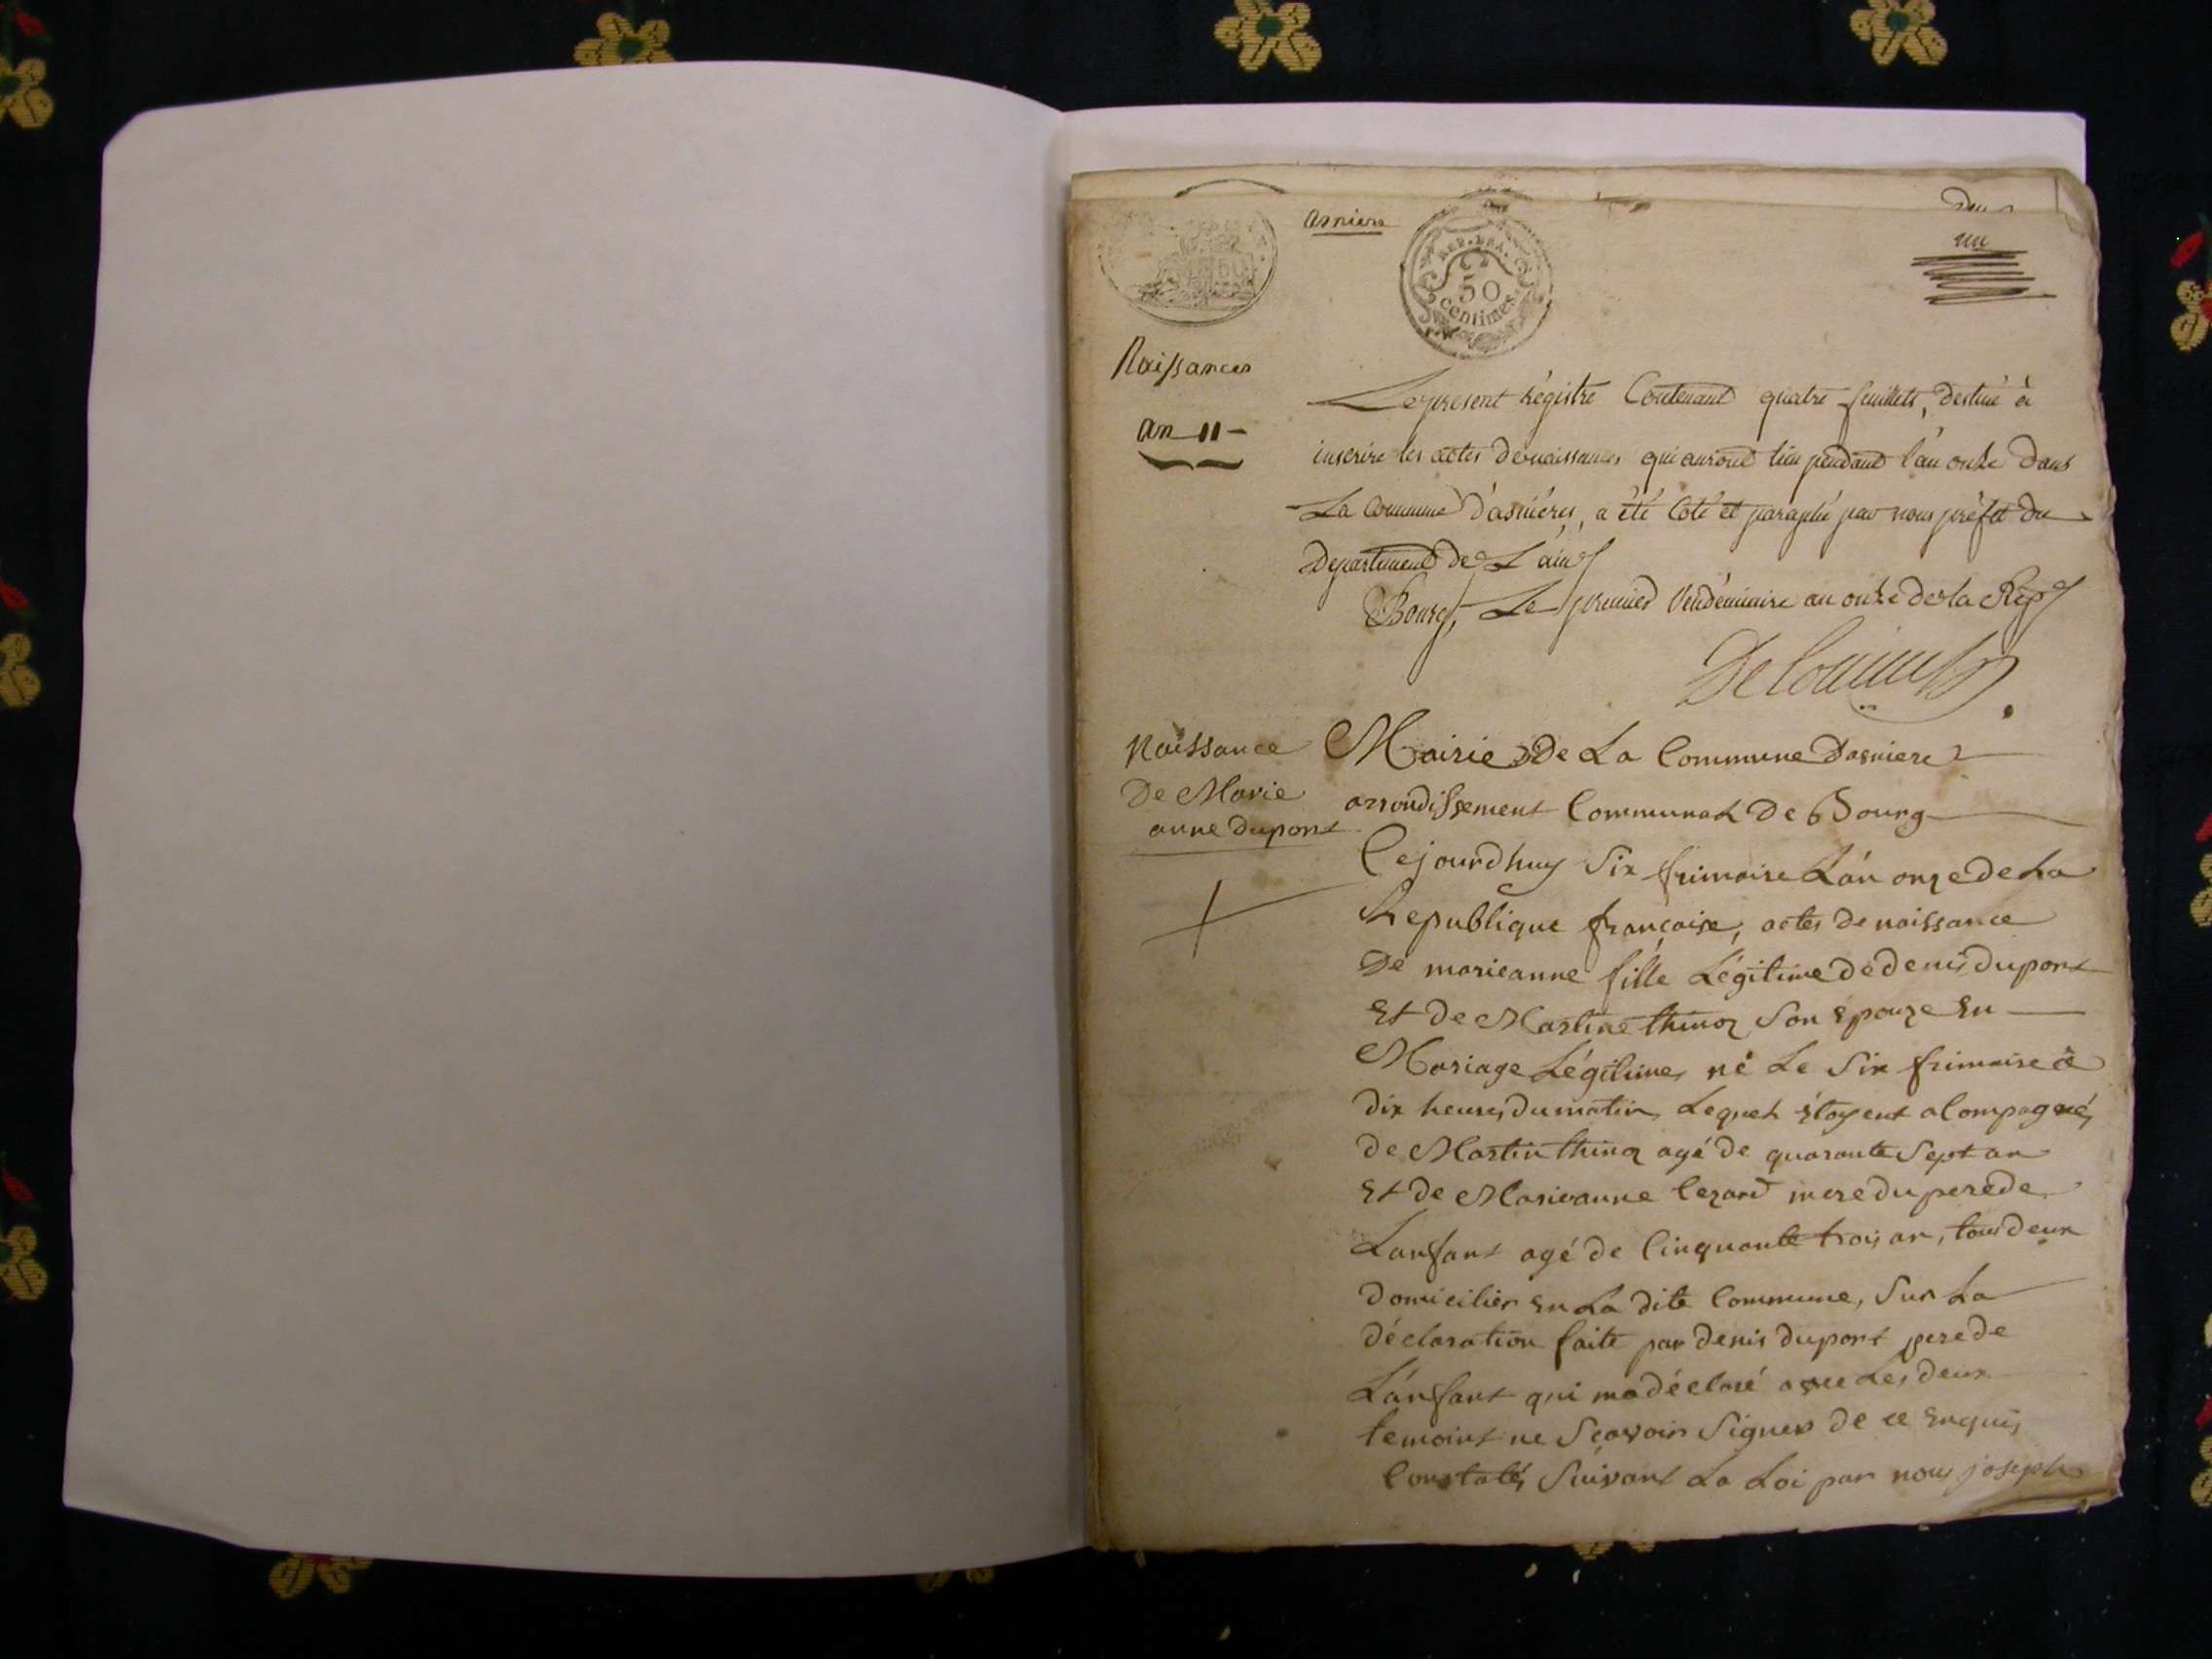 asniere
un
REP. FRA.
50
centimes
Naissances
an 11
Le present Régistre Contenant quatre feuillets, destiné à
inscrire les actes de naissances qui auront lieu pendant l'an onze dans
La Commune d'asnières, a été Coté et paraphé par nous préfet du
Departement de L'ain
Bourg, Le premier Vendémiaire an onze de la Rep
Naissance
De Marie
anne dupont
Mairie De La Commune Dasniere
arrondissement Communal De Bourg
Cejourdhuy Six frimaire L'an onze de La
Republique française, actes de naissance
De marieanne fille Légitime de denis dupont
Et de Martine thinon Son Epouze En
Mariage Légitime, né Le Six frimaire à
dix heures du matin Lequel Etoyent acompagnés
de Martin thinon agé de quarante Sept an
Et de Marieanne lezard mere du pere de
Lanfant agé de Cinquante trois an, tous deux
Domicilier En La dite Commune, Sur La
déclaration faite par denis dupont pere de
L'anfant qui ma déclaré avec Les deux
temoint ne Sçavoir Signer de ce Enquis
Constatés Suivant La Loi par nous joseph